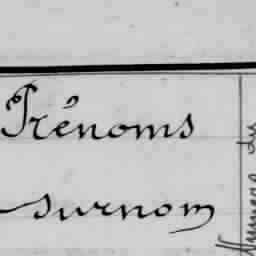 Prénoms
surnom
Numéros du